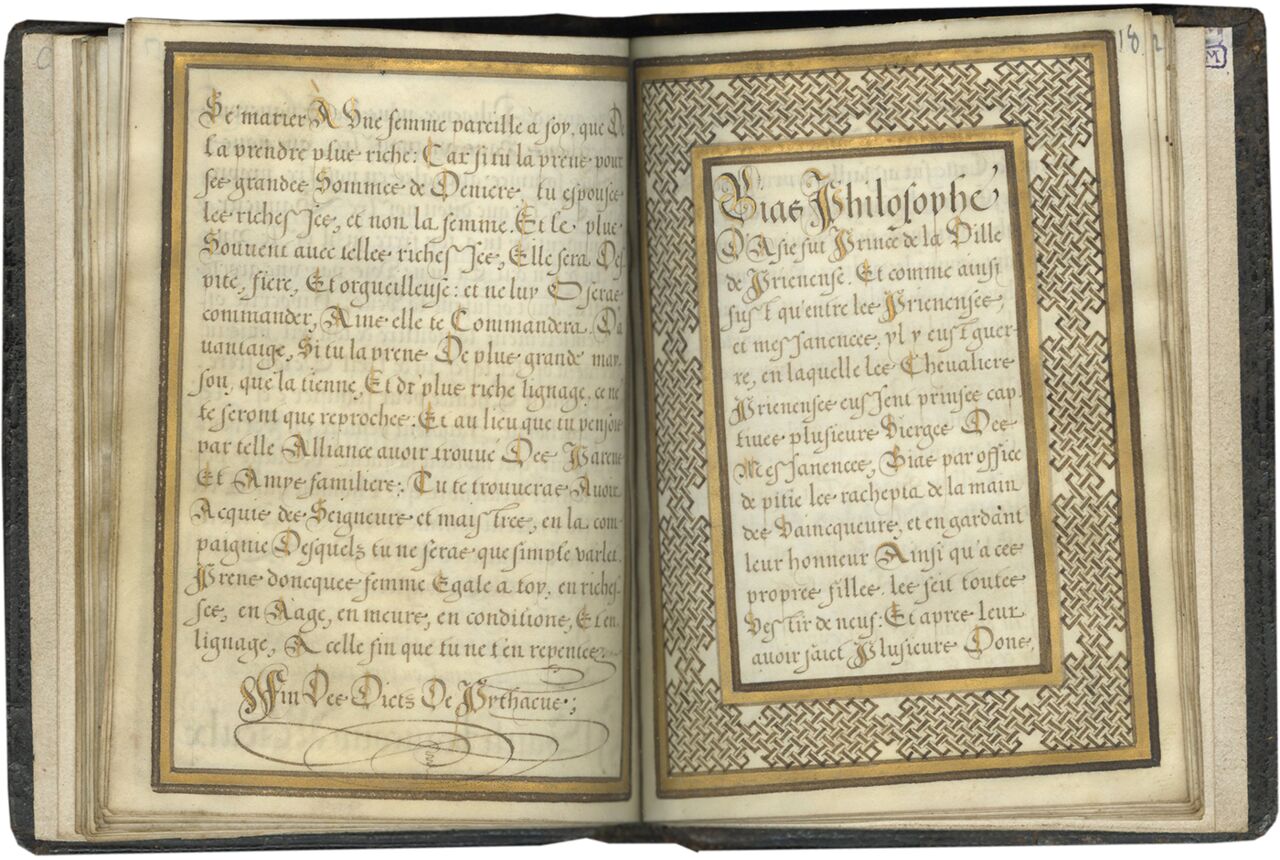 Se marier À Vne femme pareille à soy, que De
la prendre plus riche: Car si tu la prens pour
ses grandes Sommes de Deniers, tu espouses
les richesses, et non la femme. Et le plus
Souuent auec telles richesses, Elle sera Des
pite, fiere, Et orgueilleuse: et ne luy Oseras
commander, Ains elle te Commandera. D'a
uantaige, Si tu la prens De plus grande may
son, que la tienne, Et de plus riche lignage, ce ne
te seront que reproches: Et au lieu que tu pensois
par telle Alliance auoir trouué Des Parens
Et Amys familiers: Tu te trouueras Auoir
Acquis des Seigneurs et maistres, en la com-
paignie Desquelz tu ne seras que simple varlet.
Prens doncques femme Egale a toy, en riches-
ses, en Aage, en meurs, en conditions, Et en
lignage, A celle fin que tu ne t'en repentes.
Fin Des Dicts De Pythacus;
18
Bias Philosophe
D'Asie fut Prince de la Ville
de Prienense. Et comme ainsi
fust qu'entre les Prienenses,
et messanences, yl y eust guer-
re, en laquelle les Cheualiers
Prienenses eussent prinses cap
tiues plusieurs Vierges Des
Messanences, Bias par office
de pitie les rachepta de la main
des Vaincqueurs, et en gardant
leur honneur Ainsi qu'a ces
propres filles, les feit toutes
Vestir de neuf: Et apres leur
auoir faict Plusieurs Dons,